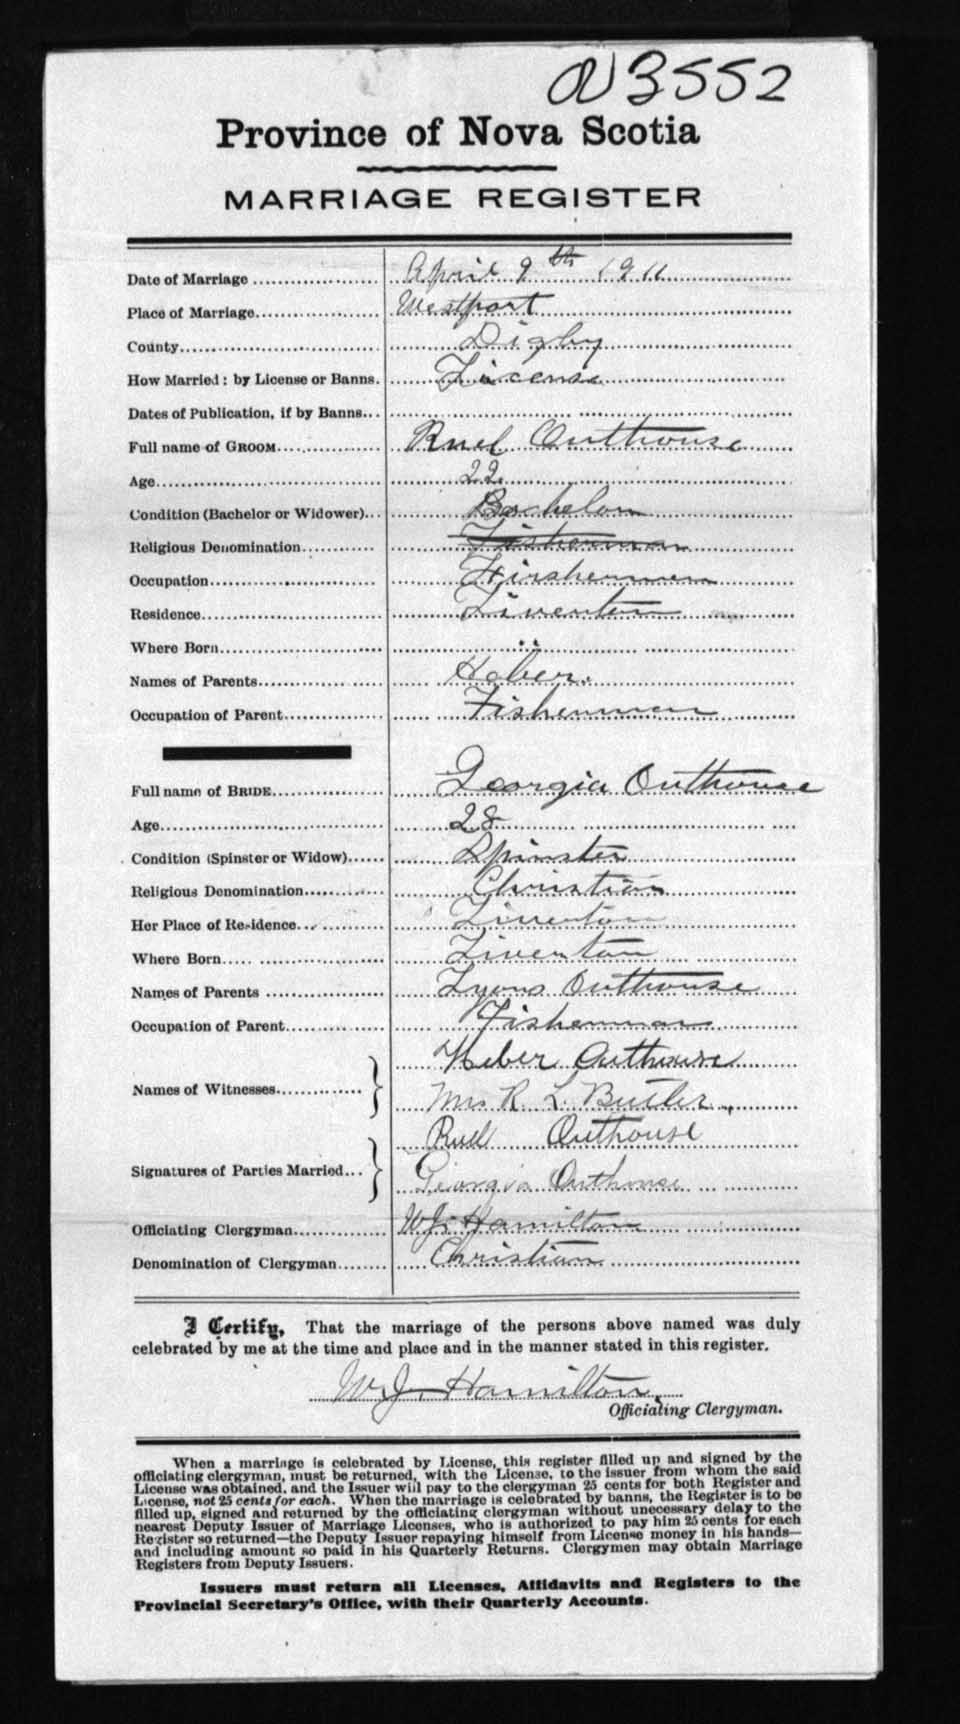 N 3552
Province of Nova Scotia
MARRIAGE REGISTER
Date of Marriage April 9th 1911
Place of Marriage Westport
County Digby
How Married: by License or Banns. License
Dates of Publication, if by Banns
Full name of GROOM Ruel Outhouse
Age 22
Condition (Bachelor or Widower) Bachelor
Religious Denomination Fisherman
Occupation Firshermen
Residence Tiverton
Where Born "
Names of Parents Heber.
Occupation of Parent Fishermen
Full name of BRIDE Georgia Outhouse
Age 28
Condition (Spinster or Widow) Spinster
Religious Denomination Christian
Her Place of Residence Tiverton
Where Born Tiverton
Names of Parents Lyons Outhouse
Occupation of Parent Fisherman
Names of Witnesses Heber Outhouse
Mrs R. L. Butler
Signatures of Parties Married Ruell Outhouse
Georgia Outhouse
Officiating Clergyman W.J. Hamilton
Denomination of Clergyman Christian
I Certify, That the marriage of the persons above named was duly
celebrated by me at the time and place and in the manner stated in this register.
W.J. Hamilton.
Officiating Clergyman.
When a marriage is celebrated by License, this register filled up and signed by the
officiating clergyman, must be returned, with the License, to the issuer from whom the said
License was obtained, and the Issuer will pay to the clergyman 25 cents for both Register and
License, not 25 cents for each. When the marriage is celebrated by banns, the Register is to be
filled up, signed and returned by the officiating clergyman without unecessary delay to the
nearest Deputy Issuer of Marriage Licenses, who is authorized to pay him 25 cents for each
Register so returned—the Deputy Issuer repaying himself from License money in his hands—
and including amount so paid in his Quarterly Returns. Clergymen may obtain Marriage
Registers from Deputy Issuers.
Issuers must return all Licenses, Affidavits and Registers to the
Provincial Secretary's Office, with their Quarterly Accounts.